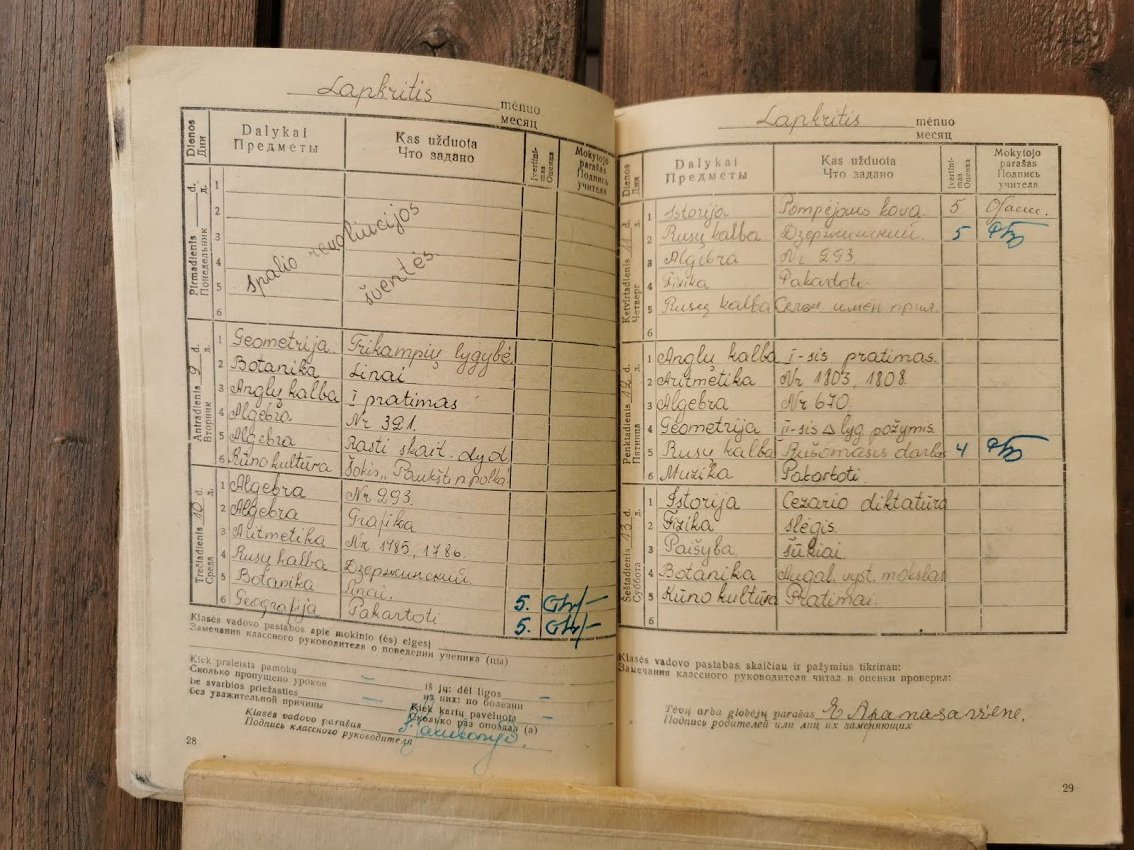 Lapkritis mėnuo
месяц
Dienos Дни
Dalykai Предметы
Kas užduota Что задано
Įvertinimas Оценка
Mokytojo parašas Подпись учителя
Pirmadienis d.
Понедельник д.
1
2
3
4
5
6
spalio revoliucijos
šventės.
Antradienis 9 d.
Вторник д.
1 Geometrija Trikampių lygybė
2 Botanika Linai
3 Anglų kalba I pratimas
4 Algebra Nr 321.
5 Algebra Rasti skait. d y d
6 Kūno kultūra Šokis
Trečiadienis 10 d.
Среда д.
1 Algebra Nr 293.
2 Algebra Grafika
3 Aritmetika Nr 1785, 1786.
4 Rusų kalba Дзержинский
5 Botanika Linai. 5.
6 Geografija Pakartoti 5.
Klasės vadovo pastabos apie mokinio (ės) elgesį
Замечания классного руководителя о поведении ученика (цы)
Kiek praleista pamokų – iš jų: dėl ligos –
Сколько пропущено уроков из них: по болезни
be svarbios priežasties – Kiek kartų pavėluota –
без уважительной причины Сколько раз опоздал (а)
Klasės vadovo parašas
Подпись классного руководителя
28
Lapkritis mėnuo
месяц
Dienos Дни
Dalykai Предметы
Kas užduota Что задано
Įvertinimas Оценка
Mokytojo parašas Подпись учителя
Ketvirtadienis 11 d.
Четверг д.
1 Istorija Pompėjaus kova. 5.
2 Rusų kalba Дзержинский. 5
3 Algebra Nr 293.
4 Fizika Pakartoti
5 Rusų kalba Склон имен прил.
6
Penktadienis 12 d.
Пятница д.
1 Anglų kalba I-sis pratimas.
2 Aritmetika Nr 1803, 1808.
3 Algebra Nr 670.
4 Geometrija II-sis Δ lyg požymis.
5 Rusų kalba Rašomasis darbas 4
6 Muzika Pakartoti
Šeštadienis 13 d.
Суббота д.
1 Istorija Cezario diktatūra
2 Fizika slėgis
3 Paišyba šūkiai
4 Botanika Augal. vyst. mokslas
5 Kūno kultūra Pratimai.
6
Klasės vadovo pastabas skaičiau ir pažymius tikrinau:
Замечания классного руководителя читал и оценки проверил:
Tėvų arba globėjų parašas
Подпись родителей или лиц их заменяющих
29